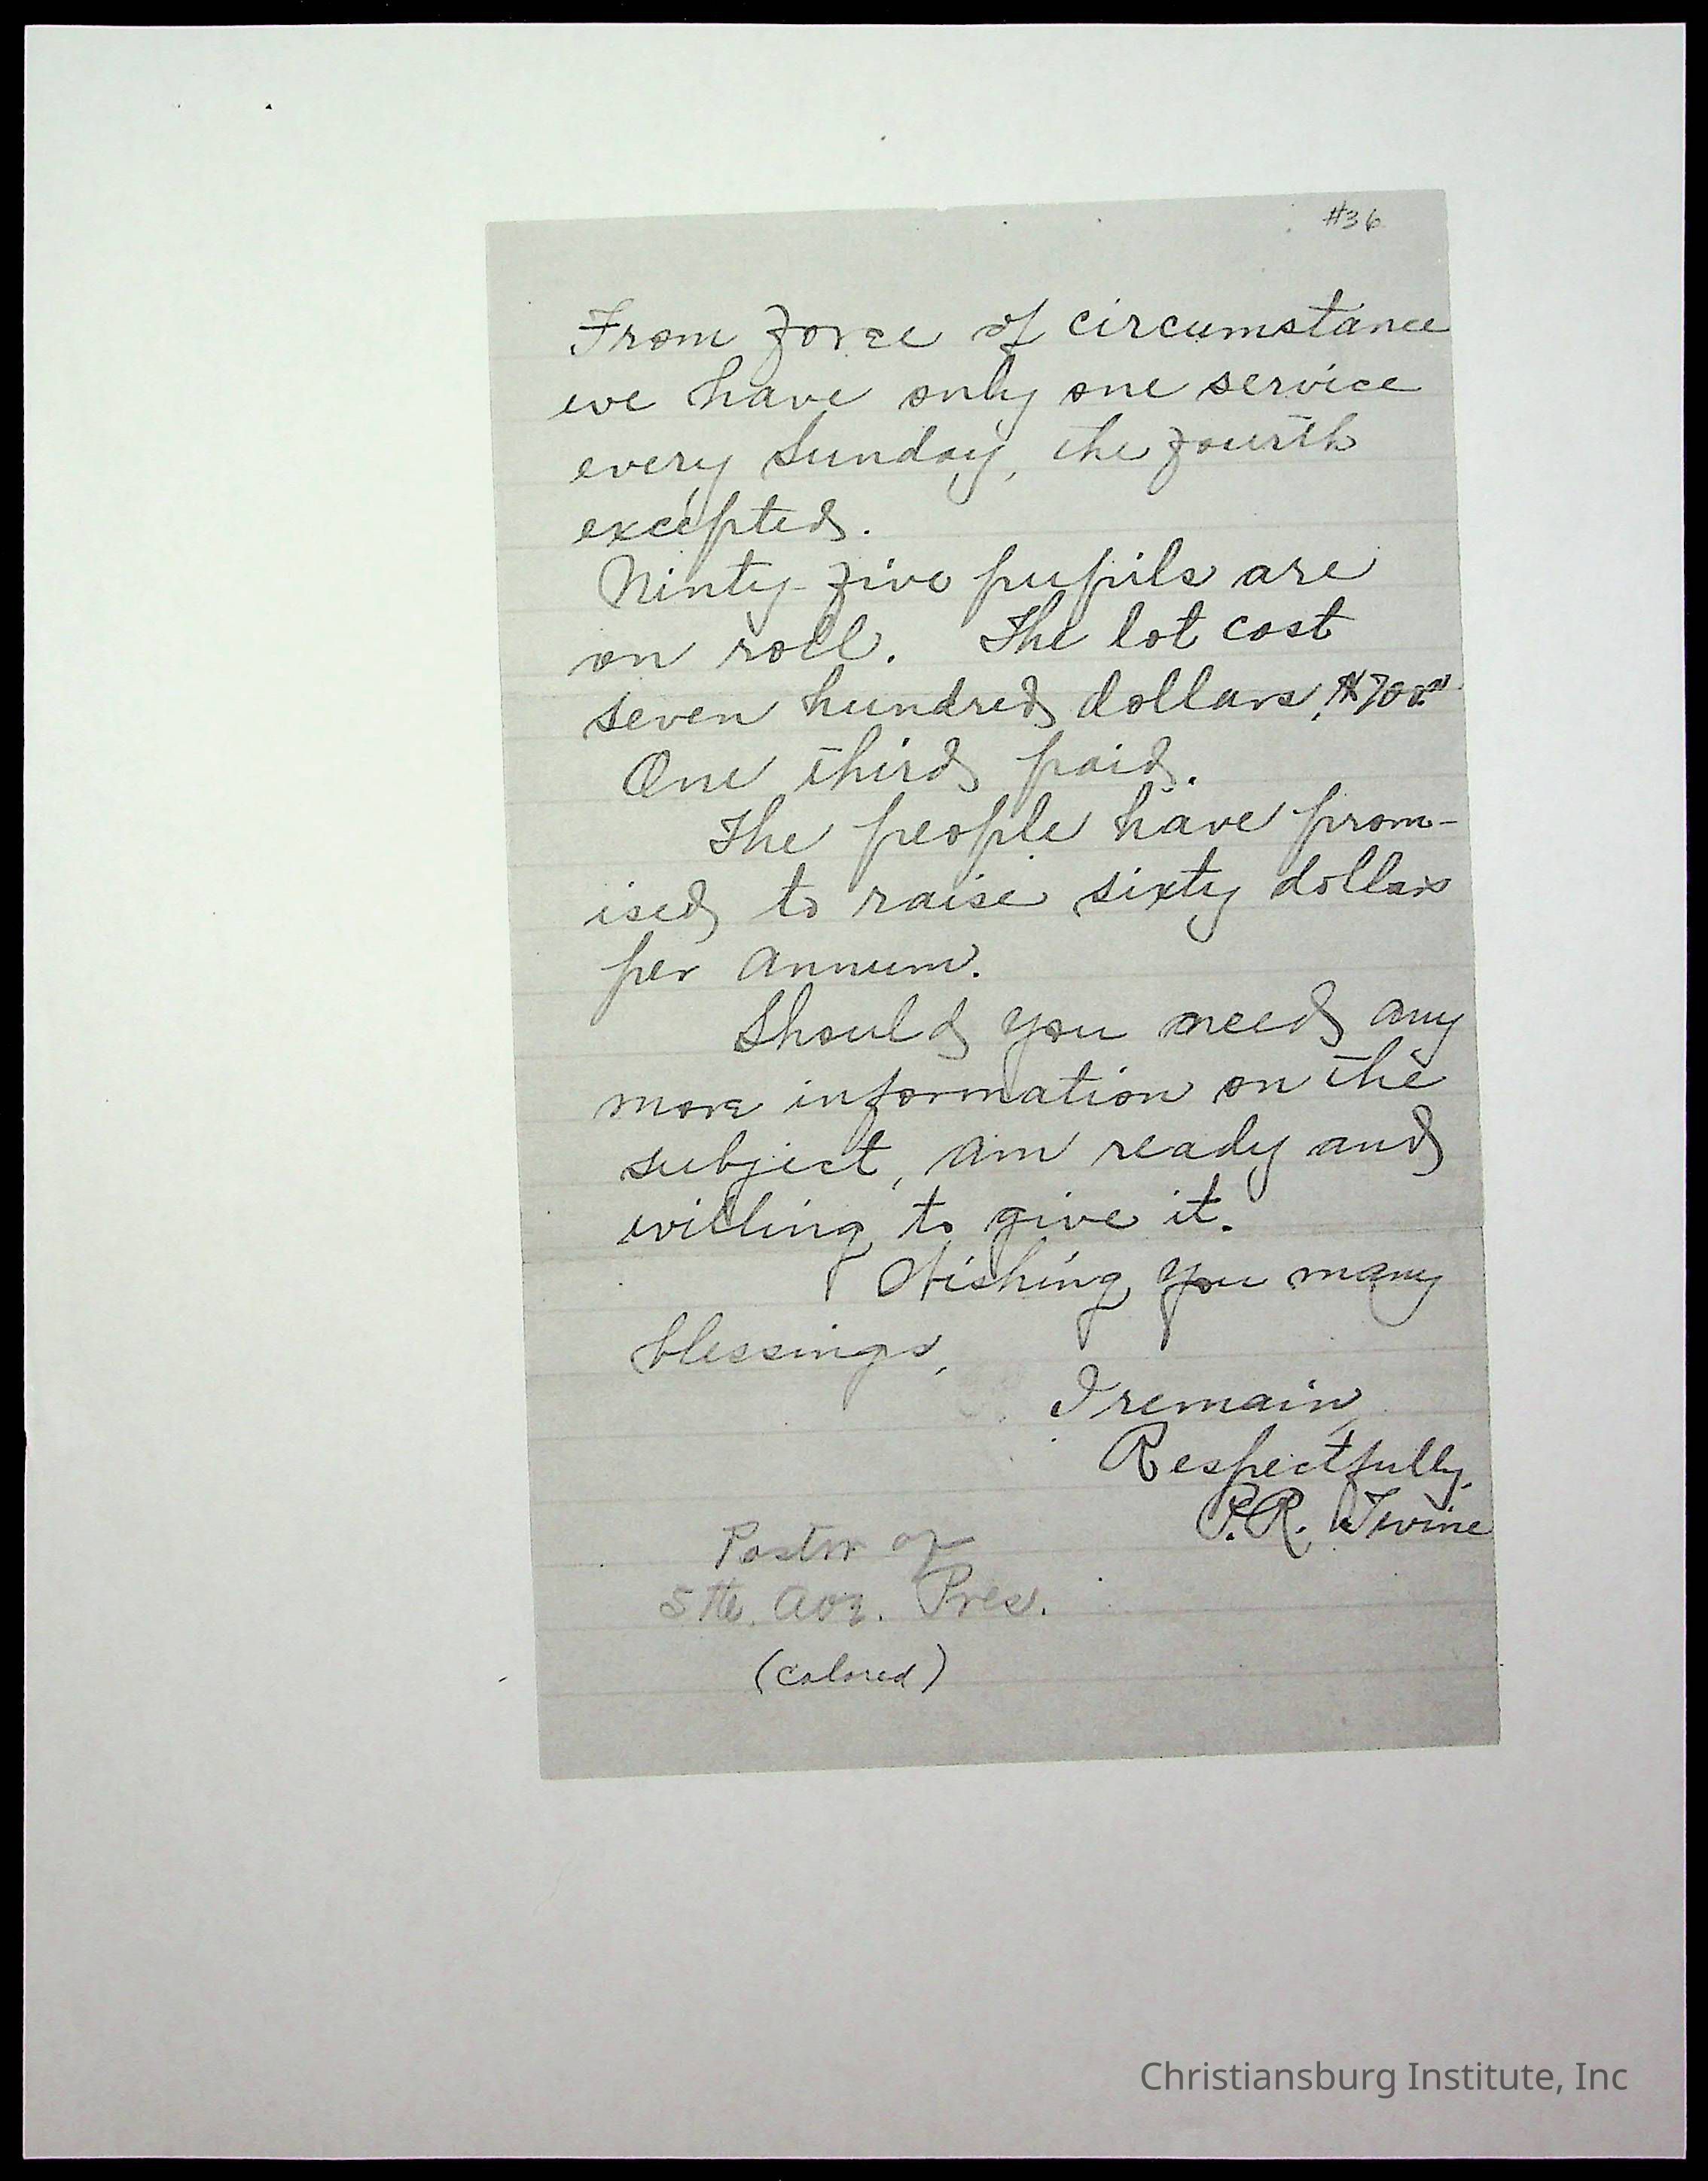 #36
From force of circumstance
we have only one service
every Sunday, the fourth
excepted.
Ninty-five pupils are
on roll. The lot cost
seven hundred dollars, $700.00
One third paid.
The people have prom-
ised to raise sixty dollars
per annum.
Should you need any
more information on the
subject, am ready and
willing to give it.
Wishing you many
blessings,
I remain,
Respectfully,
P.R. Twine
Pastor of
5th. Ave. Pres.
(colored)
Christiansburg Institute, Inc